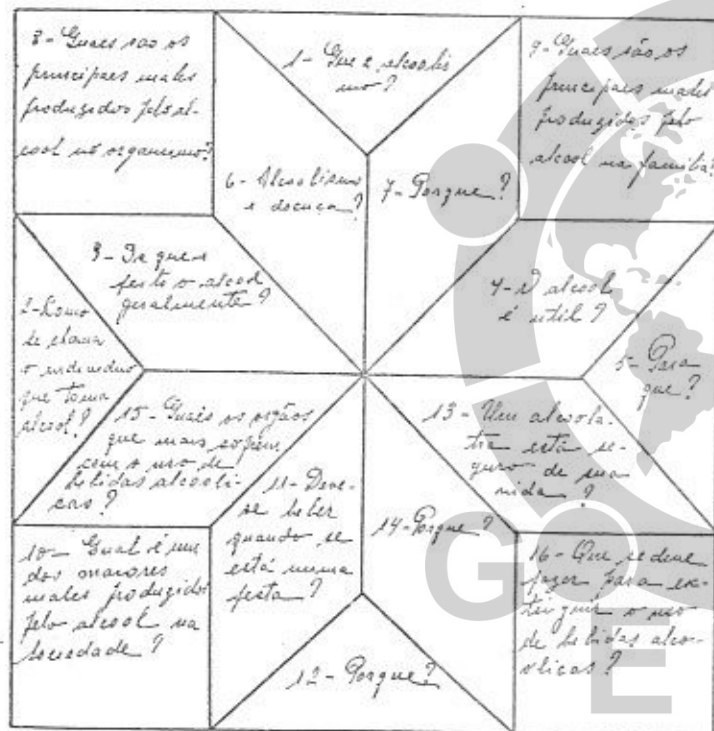 8 - Quaes são os
principaes males
produzidos pelo al-
cool no organismo?
1 - Que é alcoolis
mo?
9 - Quaes são os
principaes males
produzidos pelo
alcool na familia?
6 - Alcoolismo
é doença?
7 - Porque?
3 - De que é
feito o alcool
geralmente?
4 - O alcool
é util?
2 - Como
se chama
o individuo
que toma
alcool?
5 - Para
que?
15 - Quaes os orgãos
que mais soffrem
com o uso de
bebidas alcooli-
cas?
13 - Um alcoola-
tra está se-
guro de sua
vida?
11 - Deve-
se beber
quando se
está numa
festa?
14 - Porque?
10 - Qual é um
dos maiores
males produzidos
pelo alcool na
sociedade?
16 - Que se deve
fazer para ex-
tinguir o uso
de bebidas alco-
olicas?
12 - Porque?
G E